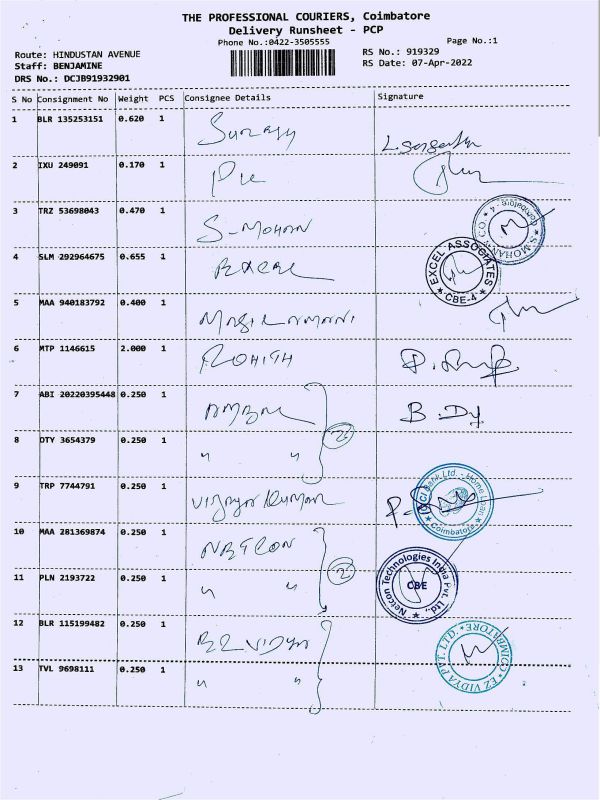 THE PROFESSIONAL COURIERS, Coimbatore
Delivery Runsheet - PCP
Phone No.:0422-3505555
Page No.:1
Route: HINDUSTAN AVENUE
Staff: BENJAMINE
DRS No.: DCJB91932901
RS No.: 919329
RS Date: 07-Apr-2022
S No Consignment No Weight PCS Consignee Details Signature
1 BLR 135253151 0.620 1
2 IXU 249091 0.170 1
3 TRZ 53698043 0.470 1 S-MOHAN
S.MOHAN & CO. * Coimbatore - 4 *
4 SLM 292964675 0.655 1
EXCEL ASSOCIATES * CBE-4 *
5 MAA 940183792 0.400 1
6 MTP 1146615 2.000 1 ROHITH
7 ABI 20220395448 0.250 1
B. Dy
8 DTY 3654379 0.250 1 " "
2
9 TRP 7744791 0.250 1 Vijaya Kumar
Bank Ltd. - Home Loan * Coimbatore *
10 MAA 281369874 0.250 1 NETCON
11 PLN 2193722 0.250 1 " "
2
Netcon Technologies India Pvt. Ltd., * CBE
12 BLR 115199482 0.250 1 EZ VIDYA
EZ VIDYA PVT. LTD. * COIMBATORE *
13 TVL 9698111 0.250 1 " "